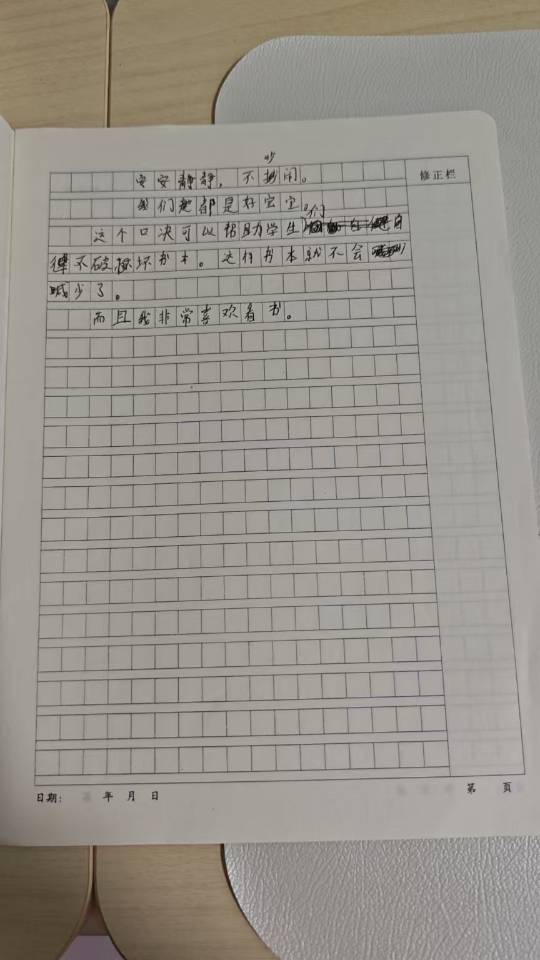 吵
安安静静，不吵闹。
修正栏
我们都是好宝宝
这个口决可以帮助学生们自
律不破坏书本。这样书本就不会
减少了。
而且我非常喜欢看书。
日期： 年 月 日
第 页